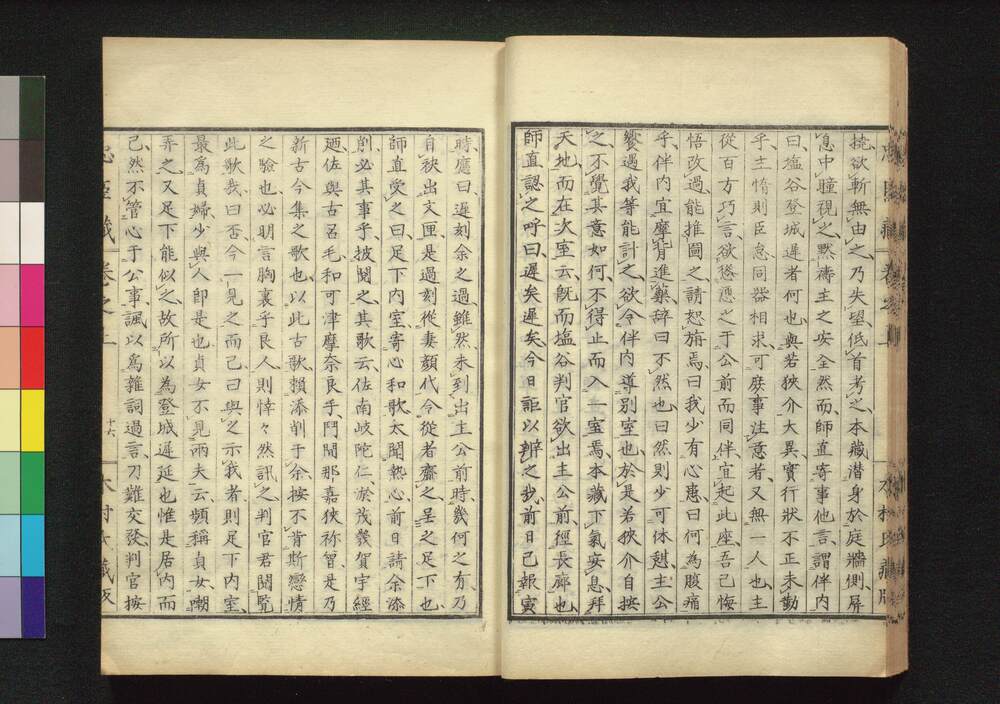 撓欲斬無由之乃失望低首考之本藏潜身於庭牆側屏
息中瞳視之黙禱主之安全然而師直寄事他言謂伴内
曰塩谷登城遲者何也與若狹介大異實行狀不正未勤
乎主惰則臣怠同器相求可庶事注意者又無一人也主
從百方巧言欲慫慂之于公前而同伴宜起此座吾已悔
悟改過能推圖之請恕旃焉曰我少有心恚曰何為腹痛
乎伴内宜摩背進藥辞曰不然也曰然則少可休憇主公
饗遇我等能計之欲令伴内導別室也於是若狹介自按
之不覺其意如何不得止而入一室焉本藏下氣安息拜
天地而在次室云既而塩谷判官欲出主公前徑長廊也
師直認之呼曰遲矣遲矣今日詎以辨之我前日已報寅
時應曰遲刻余之過雖然未到出主公前時幾何之有乃
自袂出文匣是過刻從妻顔代令從者齎之呈之足下也
師直受之曰足下内室寄心和歌太聞熱心前日請余添
削必其事乎披閲之其歌云佐南岐陀仁於茂義賀宇經
廼佐與古呂毛和可津摩奈良手門聞那嘉狹祢曾是乃
新古今集之歌也以此古歌賴添削于余按不肯斯戀情
之驗也必明言胸裏乎良人則悻々然訊之判官君閲覧
此歌哉曰否今一見之而已曰與之示我者則足下内室
最為貞婦少與人即是也貞女不見兩夫云頻稱貞女嘲
弄之又足下能似之故所以為登城遲延也惟是居内而
已然不管心于公事諷以為雜詞過言刀難交發判官按
忠臣藏 卷之上 十六 木村氏藏版